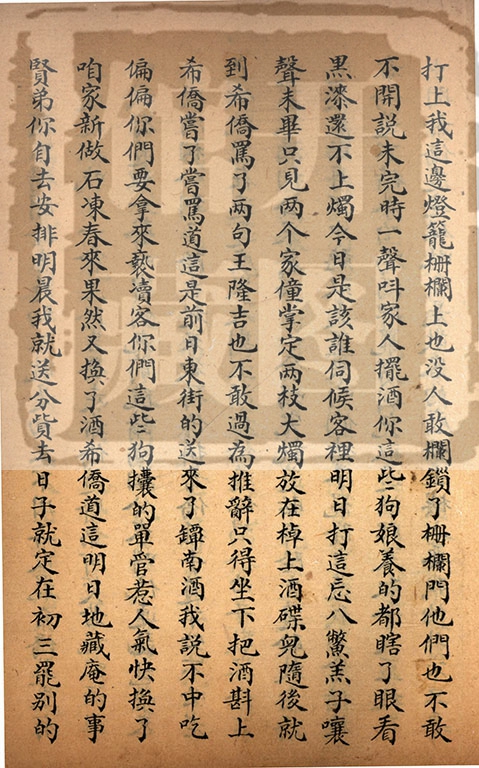 打上我這邊燈籠柵欄上也没人敢欄鎖了柵欄門他們也不敢
不開說未完時一聲呌家人擺酒你這些狗娘養的都瞎了眼看
黒漆還不上燭今日是該誰伺候客裡明日打這忘八鱉羔子嚷
聲未畢只見两个家僮掌定两枝大燭放在棹上酒碟兒隨後就
到希僑罵了两句王隆吉也不敢過為推辭只得坐下把酒斟上
希僑嘗了嘗罵道這是前日東街的送來了罈南酒我說不中吃
偏偏你們要拿來褻瀆客你們這些狗攮的單管惹人氣快換了
咱家新做石凍春來果然又換了酒希僑道這明日地藏庵的事
賢弟你自去安排明晨我就送分貲去日子就定在初三罷别的